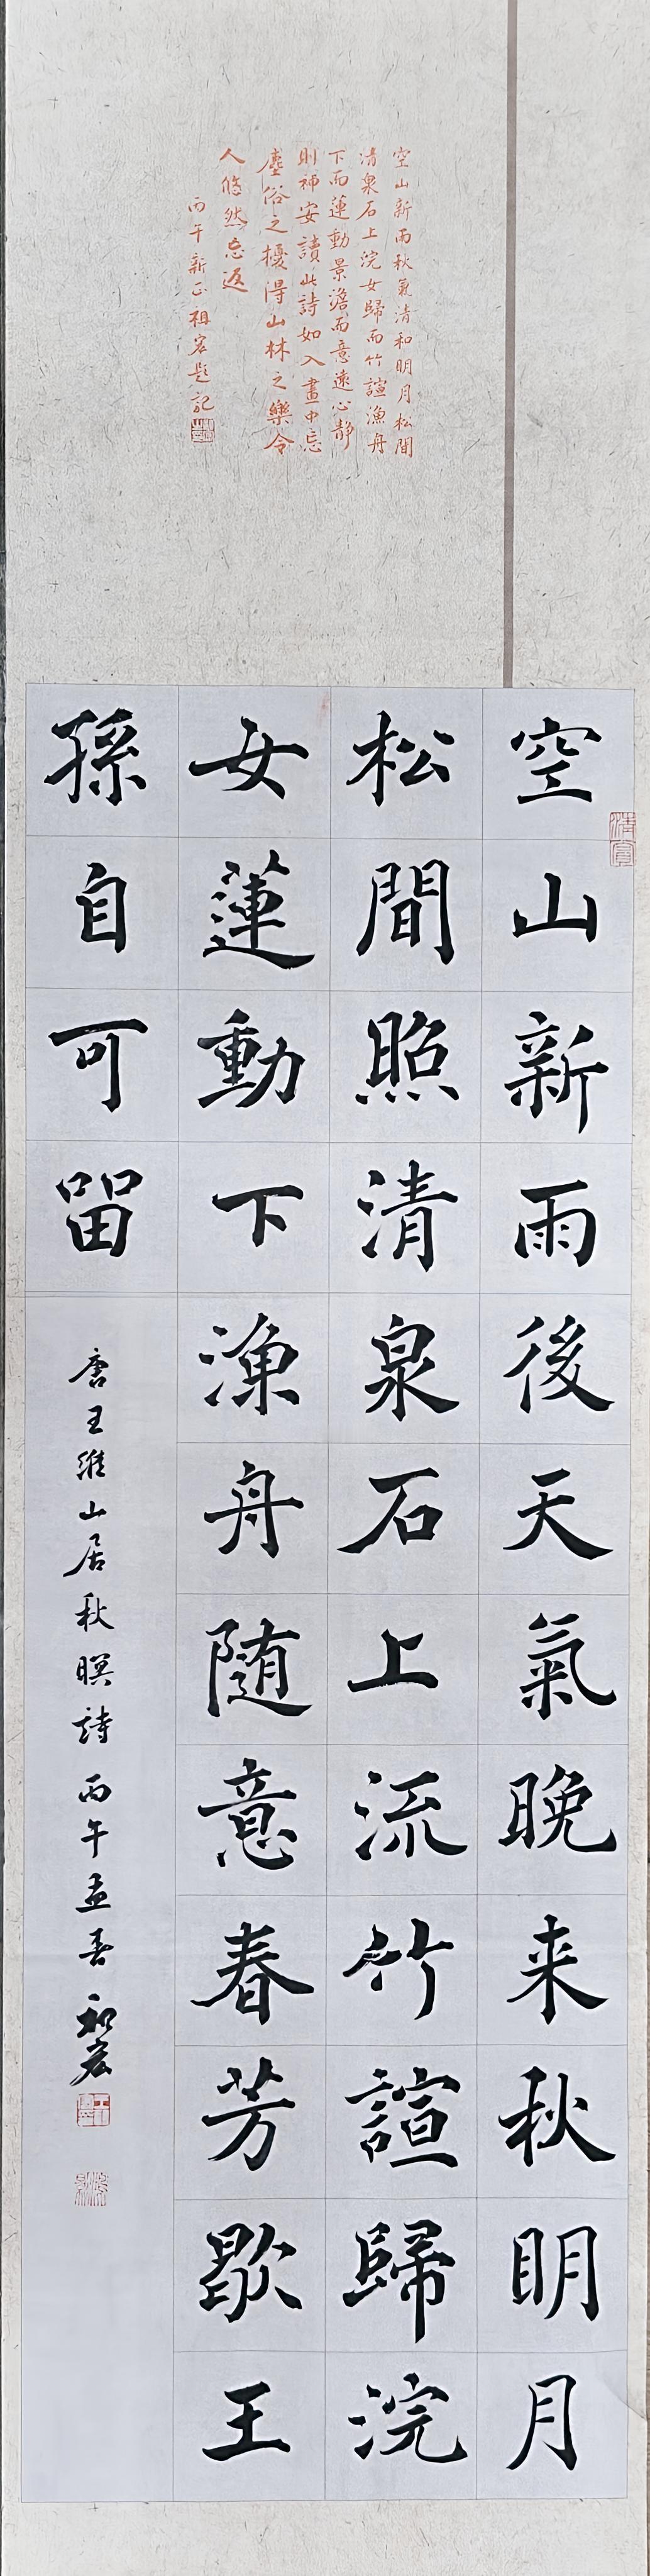 空山新雨秋氣清和明月松間
清泉石上浣女歸而竹諠漁舟
下而蓮動景澹而意遠心靜
則神安讀此詩如入畫中忘
塵俗之擾得山林之樂令
人悠然忘返
丙午新正祖宏題記
空山新雨後天氣晚来秋明月
松間照清泉石上流竹諠歸浣
女蓮動下漁舟随意春芳歇王
孫自可留
唐王維山居秋暝詩丙午孟春祖宏
清賞